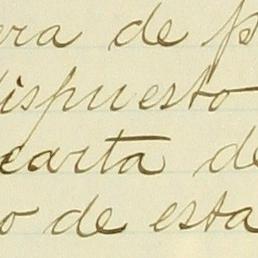 era de p
dispuesto
carta de
o de esta